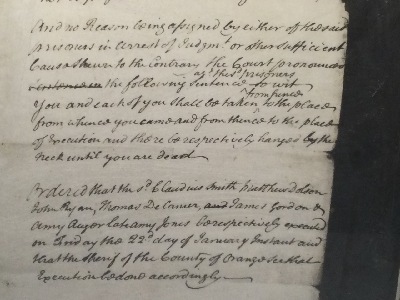 And no Reason being assigned by either of the said
prisoners in arrest of Judgmt. or other sufficient
Cause shewn to the Contrary the Court pronounced
agt. these prisoners
the following Sentence to wit
You and each of you shall be taken to the place
from whence you came and from thence to the place
of Execution and there be respectively hanged by the
Neck until you are dead
Ordered that the sd. Claudius Smith Matthew Dolson
John Ryan, Thomas De Lamer, and James Gordon &
Amy Augor late Amy Jones be respectively executed
on Friday the 22d. day of January Instant and
that the Sherif of the County of Orange see that
Execution be done accordingly